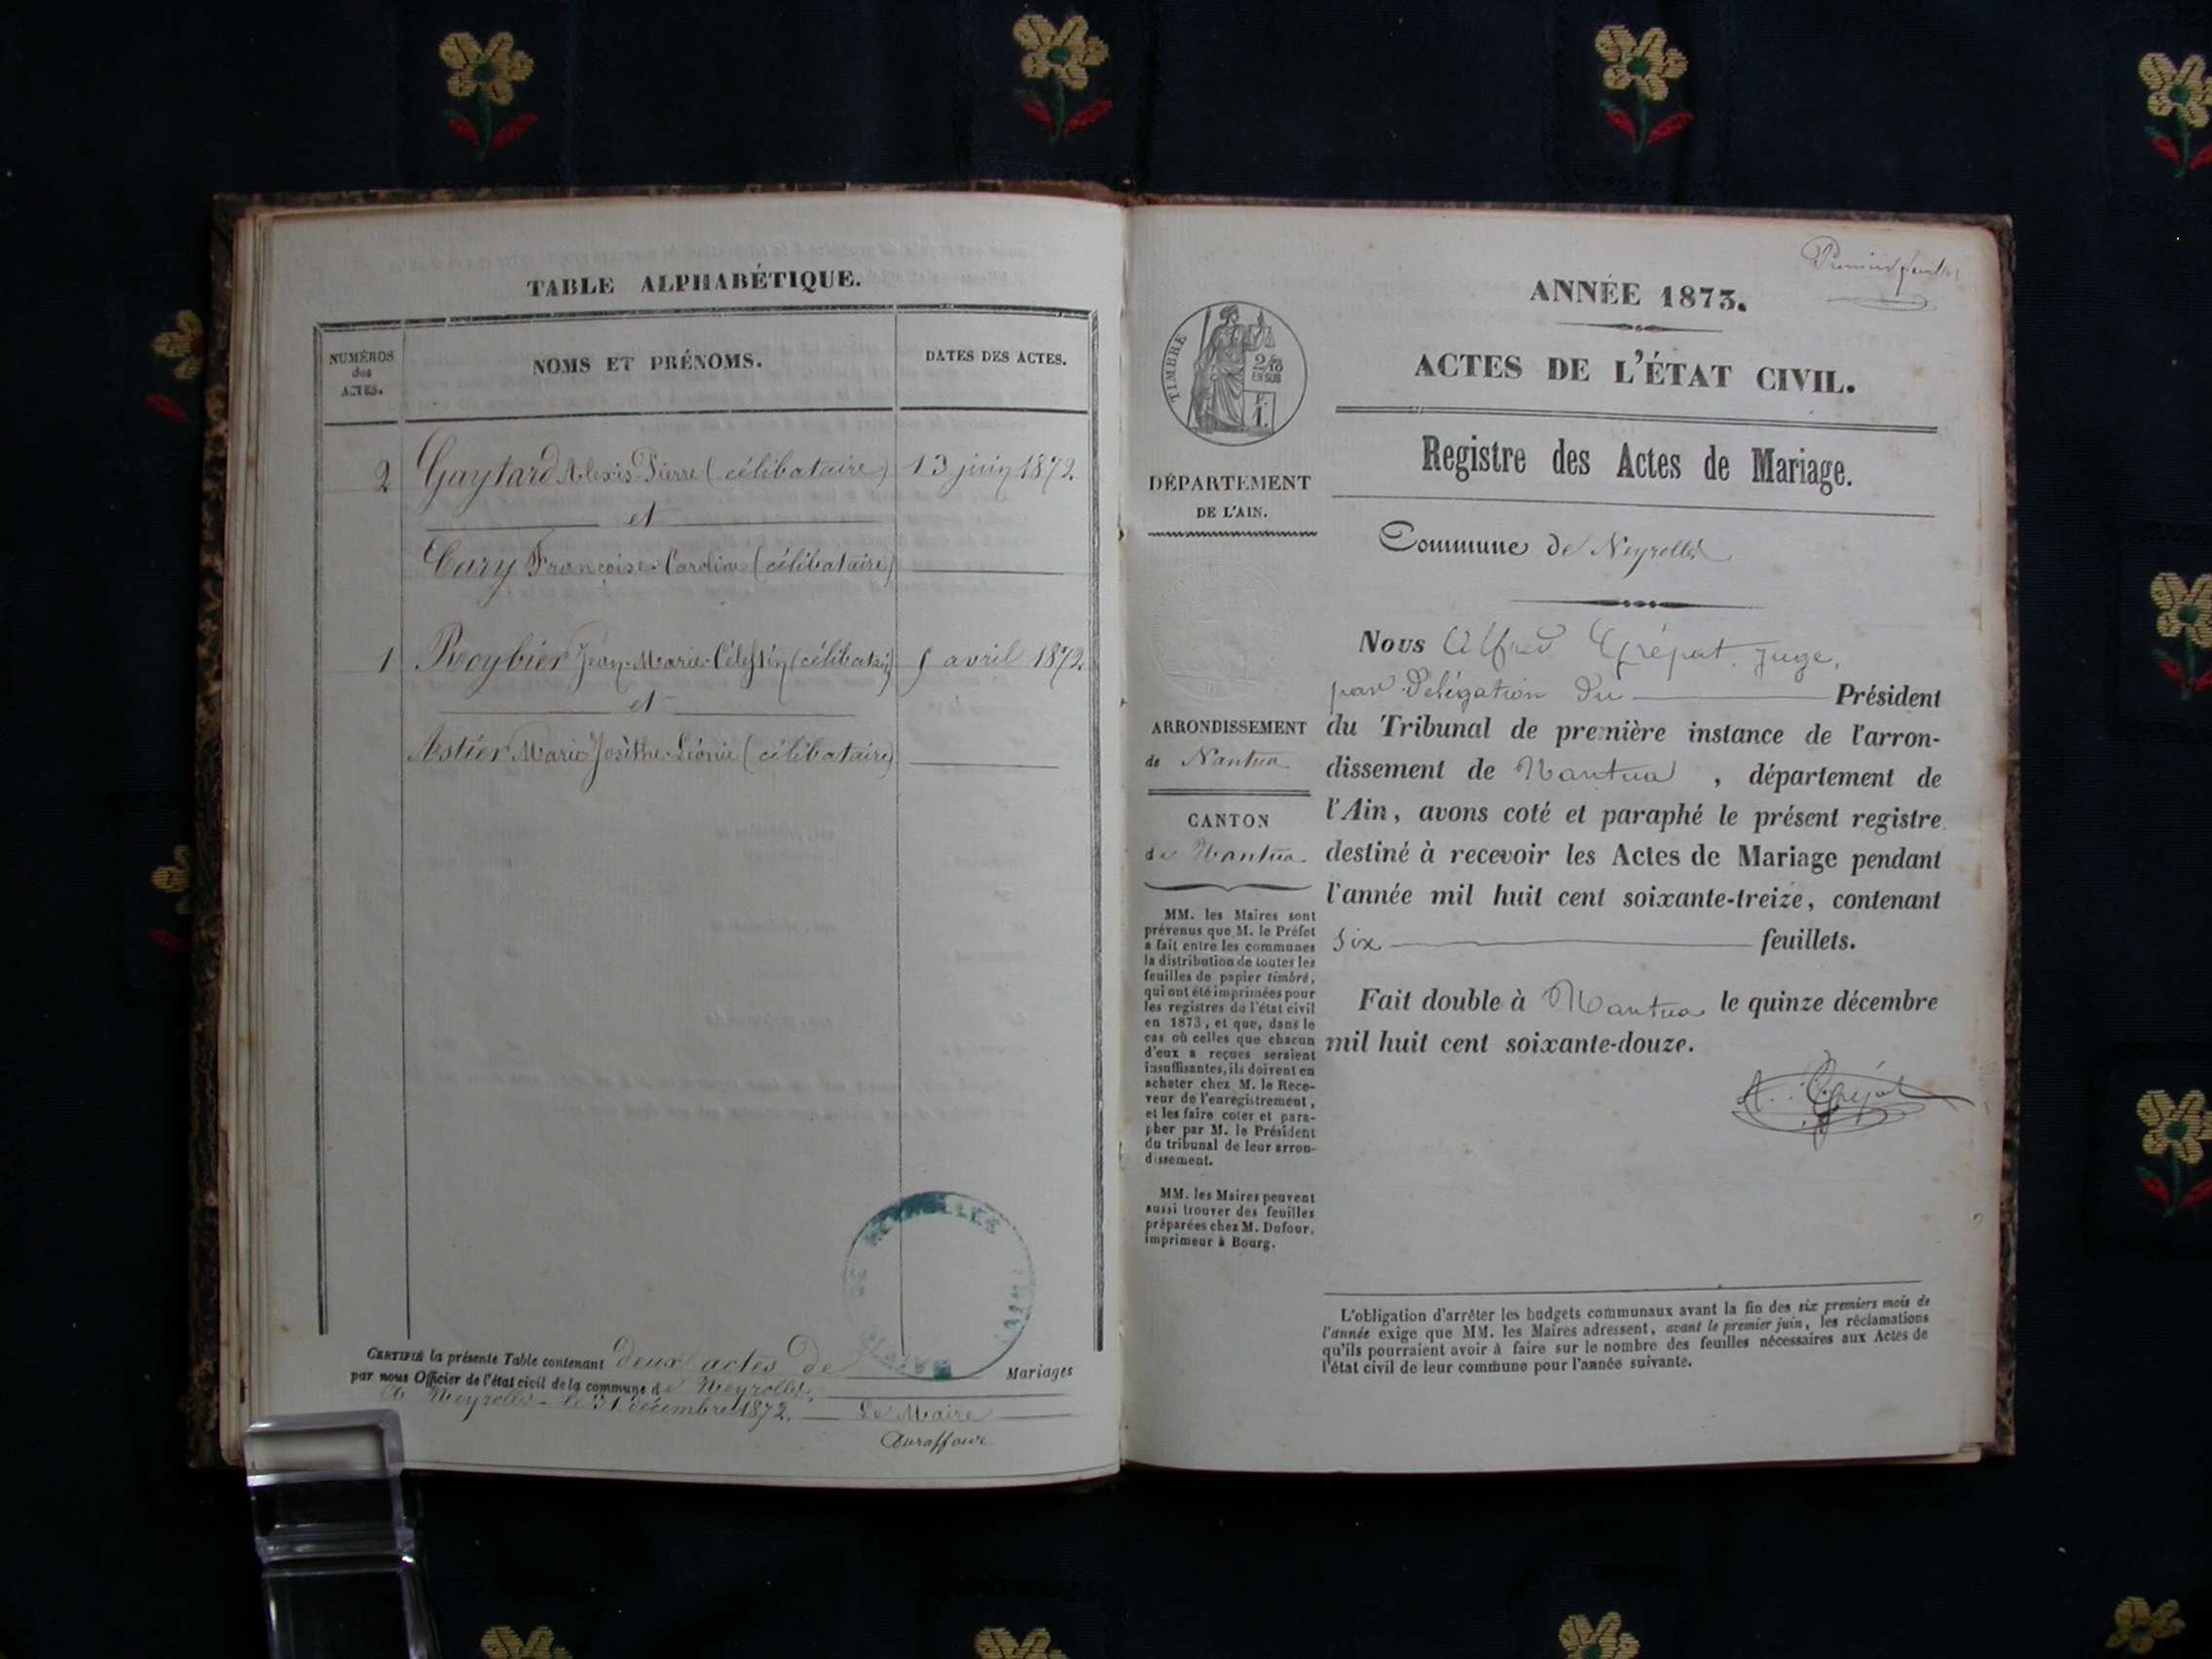 TABLE ALPHABÉTIQUE.
NUMÉROS
des
ACTES.
NOMS ET PRÉNOMS.
DATES DES ACTES.
2 Gaytard Alexis Pierre (célibataire) 13 juin 1872.
et
Cary Françoise Caroline (célibataire)
1 Roybier Jean-Marie-Célestin (célibataire) 5 avril 1872.
et
Astier Marie Josèthe Léonie (célibataire)
MAIRIE DE NEYROLLES
CERTIFIÉ la présente Table contenant deux actes de Mariages
par nous Officier de l'état civil de la commune de Neyrolles,
A Neyrolles le 31 décembre 1872. Le Maire
Premier feuillet
ANNÉE 1873.
ACTES DE L'ÉTAT CIVIL.
Registre des Actes de Mariage.
Commune de Neyrolles
TIMBRE
2/10
EN SUS
F.
1.
DÉPARTEMENT
DE L'AIN.
ARRONDISSEMENT
de Nantua
CANTON
de Nantua
MM. les Maires sont
prévenus que M. le Préfet
a fait entre les communes
la distribution de toutes les
feuilles de papier timbré,
qui ont été imprimées pour
les registres de l'état civil
en 1873, et que, dans le
cas où celles que chacun
d'eux a reçues seraient
insuffisantes, ils doivent en
acheter chez M. le Rece-
veur de l'enregistrement,
et les faire coter et para-
pher par M. le Président
du tribunal de leur arron-
dissement.
MM. les Maires peuvent
aussi trouver des feuilles
préparées chez M. Dufour,
imprimeur à Bourg.
Nous Alfred Grépat, juge,
par délégation du Président
du Tribunal de première instance de l'arron-
dissement de Nantua , département de
l'Ain, avons coté et paraphé le présent registre
destiné à recevoir les Actes de Mariage pendant
l'année mil huit cent soixante-treize, contenant
six feuillets.
Fait double à Nantua le quinze décembre
mil huit cent soixante-douze.
L'obligation d'arrêter les budgets communaux avant la fin des six premiers mois de
l'année exige que MM. les Maires adressent, avant le premier juin, les réclamations
qu'ils pourraient avoir à faire sur le nombre des feuilles nécessaires aux Actes de
l'état civil de leur commune pour l'année suivante.